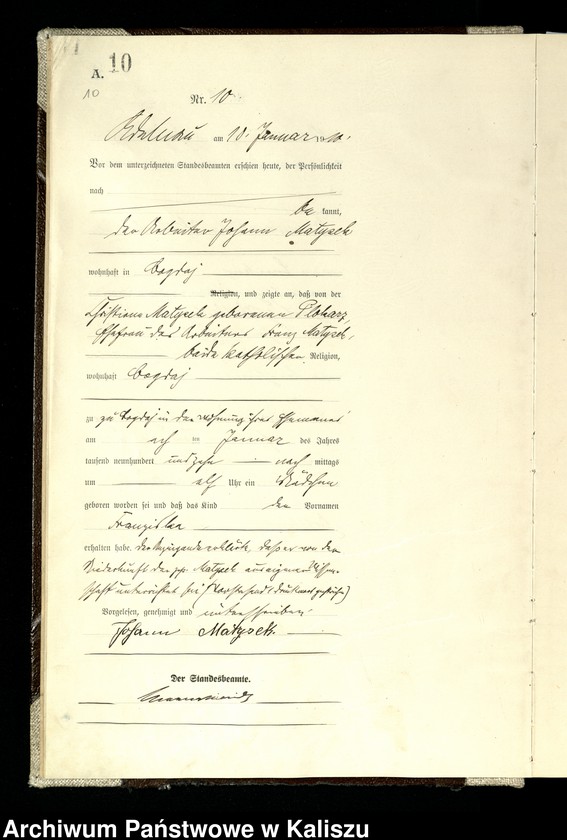 A. 10
10
Nr. 10
Adelnau am 10. Januar 1910.
Vor dem unterzeichneten Standesbeamten erschien heute, der Persönlichkeit
nach
be kannt,
der Arbeiter Johann Matysek
wohnhaft in Bogdaj
Religion, und zeigte an, daß von der
Christiana Matysek geborenen
Ehefrau des Arbeiters Franz Matysek,
beide katholischer Religion,
wohnhaft Bogdaj
zu zu Bogdaj in der Wohnung ihres Ehemannes
am ten Januar des Jahres
tausend neunhundert und zehn nach mittags
um elf Uhr ein Mädchen
geboren worden sei und daß das Kind den Vornamen
Franziska
erhalten habe. Der Anzeigende erklärte, daß er von der
Niederkunft der pp. Matysek aus eigener Wissen-
schaft unterrichtet sei (Vorstehend Druckwort gestrichen)
Vorgelesen, genehmigt und unterschrieben
Johann Matysek.
Der Standesbeamte.
Archiwum Państwowe w Kaliszu